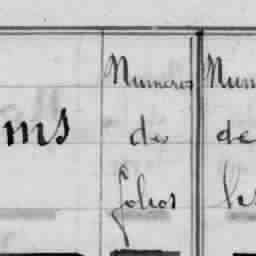 Numeros
de
folios
ms
Num
de